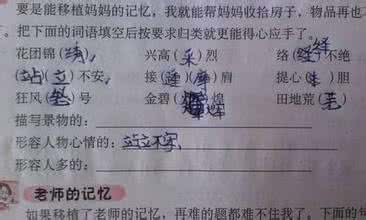 要是能移植妈妈的记忆，我就能帮妈妈收拾房子，物品再也
。把下面的词语填空后按要求归类就更能得心应手了。
花团锦( ) 兴高(采)烈 络( )不绝 绎
(站)(立)不安 接( )( )肩 提心( )胆
狂风( )号 金碧( )煌 辉 田地荒( )
描写景物的：
形容人物心情的：站立不安,
形容人多的：
老师的记忆
如果移植了老师的记忆，再难的题都难不住我了，下面的句